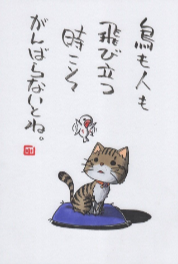 鳥も人も
飛び立つ
時こそ
がんばらないとね。